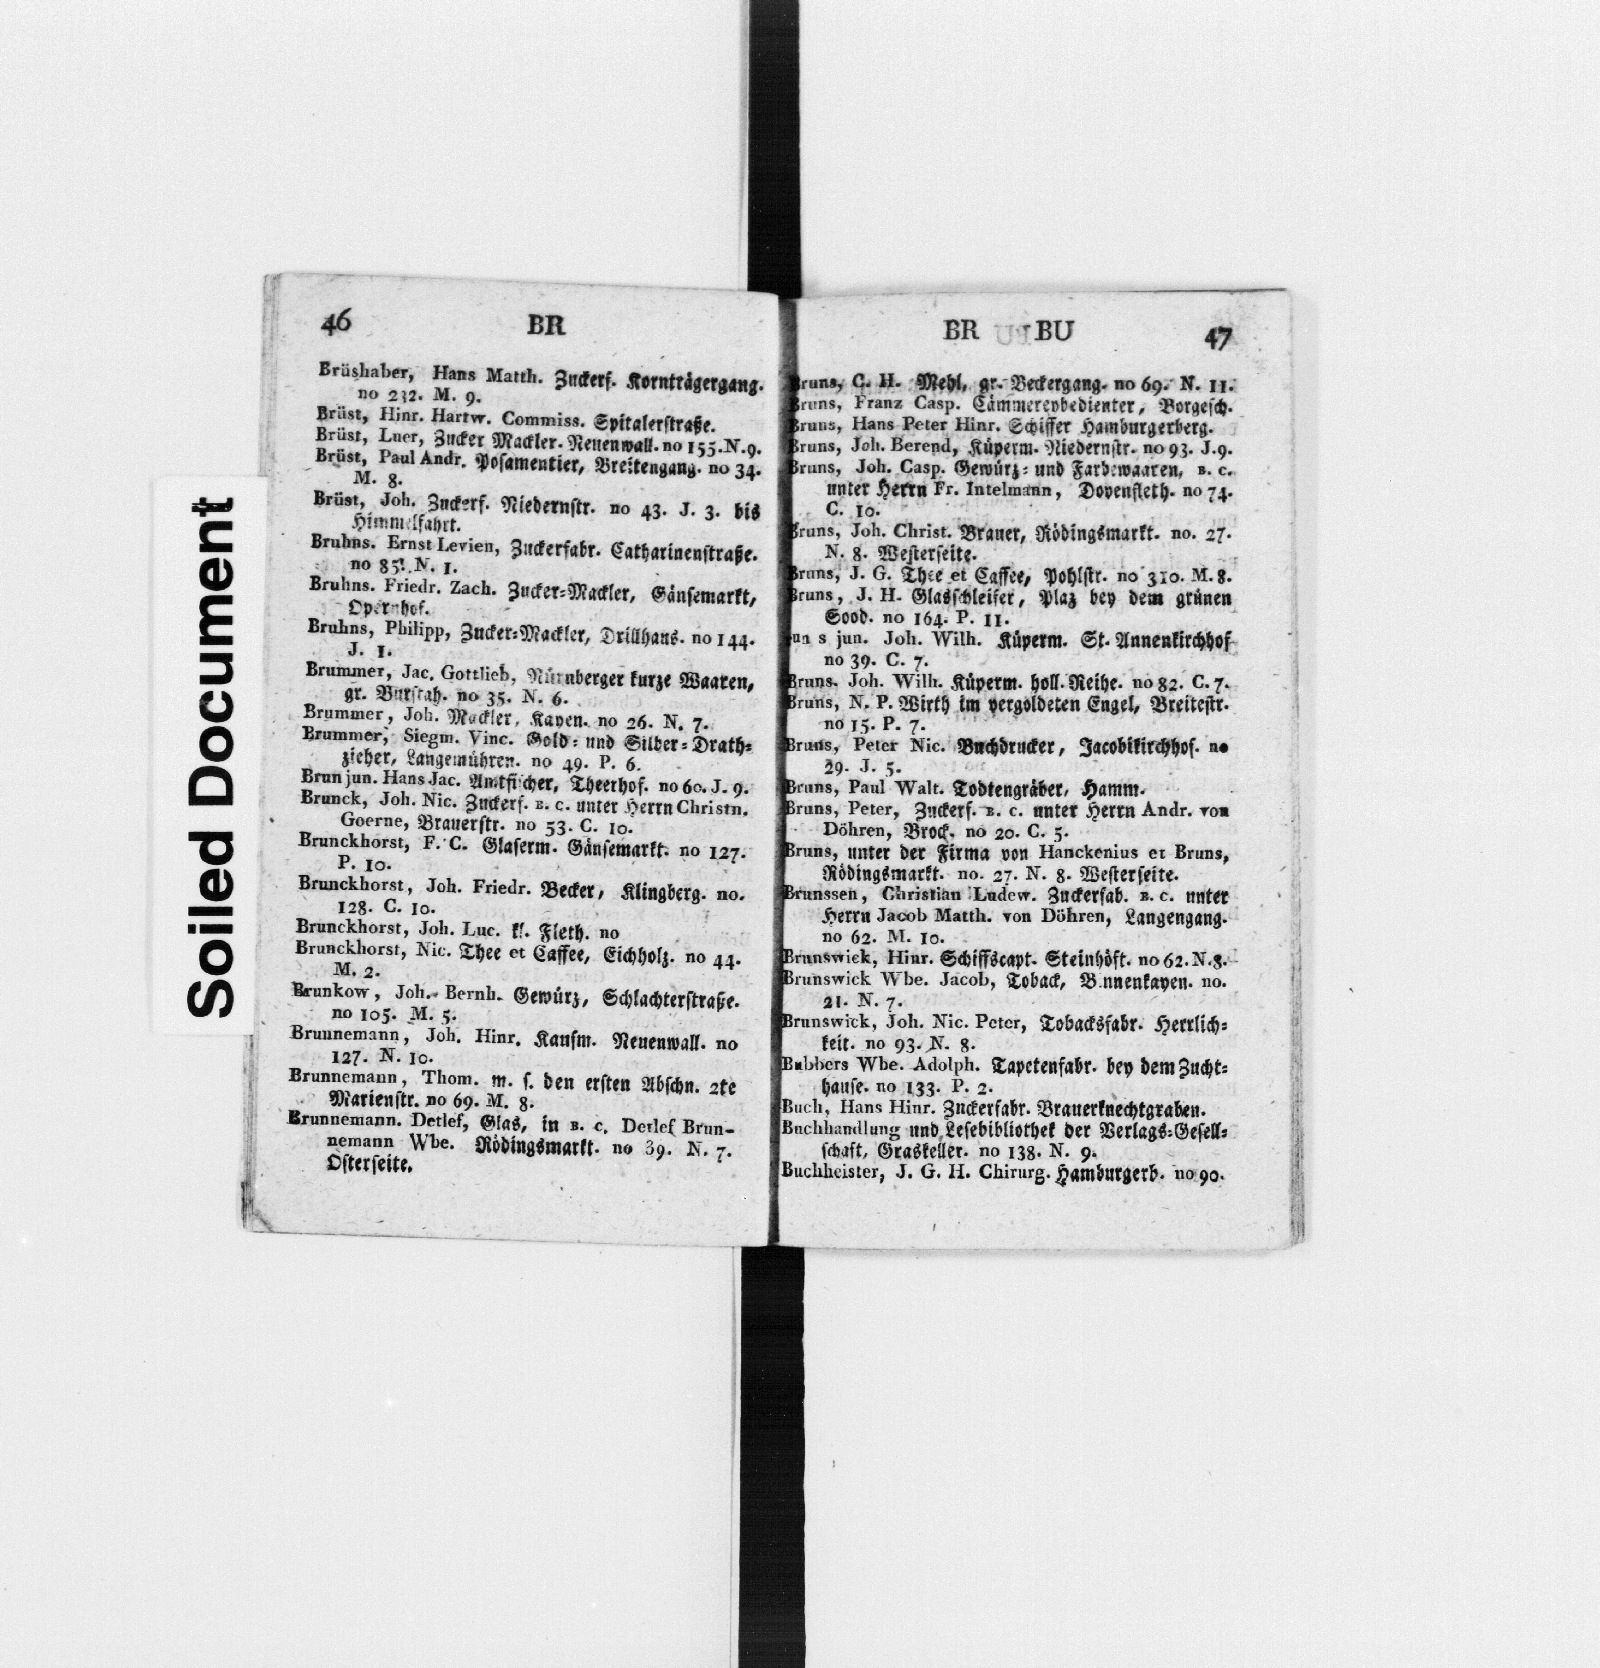 Soiled Document
46 BR
Brüshaber, Hans Matth. Zuckerf. Kornträgergang.
no 232. M. 9.
Brüst, Hinr. Hartw. Commiss. Spitalerstraße.
Brüst, Luer, Zucker Mackler. Neuenwall. no 155. N. 9.
Brüst, Paul Andr. Posamentier, Breitengang. no 34.
M. 8.
Brüst, Joh. Zuckerf. Niedernstr. no 43. J. 3. bis
Himmelfahrt.
Bruhns. Ernst Levien, Zuckerfabr. Catharinenstraße.
no 85. N. 1.
Bruhns. Friedr. Zach. Zucker-Mackler, Gänsemarkt,
Opernhof.
Bruhns, Philipp, Zucker-Mackler, Drillhaus. no 144.
J. 1.
Brummer, Jac. Gottlieb, Nürnberger kurze Waaren,
gr. Burstah. no 35. N. 6.
Brummer, Joh. Mackler, Kayen. no 26. N. 7.
Brummer, Siegm. Vinc. Gold- und Silber-Drath-
zieher, Langemühren. no 49. P. 6.
Brun jun. Hans Jac. Amtfischer, Theerhof. no 60. J. 9.
Brunck, Joh. Nic. Zuckerf. B. C. unter Herrn Christn.
Goerne, Brauerstr. no 53. C. 10.
Brunckhorst, F. C. Glaserm. Gänsemarkt. no 127.
P. 10.
Brunckhorst, Joh. Friedr. Becker, Klingberg. no.
128. C. 10.
Brunckhorst, Joh. Luc. kl. Fleth. no
Brunckhorst, Nic. Thee et Caffee, Eichholz. no 44.
M. 2.
Brunkow, Joh. Bernh. Gewürz, Schlachterstraße.
no 105. M. 5.
Brunnemann, Joh. Hinr. Kaufm. Neuenwall. no
127. N. 10.
Brunnemann, Thom. m. s. den ersten Abschn. 2te
Marienstr. no 69. M. 8.
Brunnemann. Detlef, Glas, in B. C. Detlef Brun-
nemann Wbe. Rödingsmarkt. no 39. N. 7.
Osterseite.
BR BU 47
Bruns, C. H. Mehl, gr. Beckergang. no 69. N. 11.
Bruns, Franz Casp. Cämmereybedienter, Borgesch.
Bruns, Hans Peter Hinr. Schiffer Hamburgerberg.
Bruns, Joh. Berend, Küperm. Niedernstr. no 93. J. 9.
Bruns, Joh. Casp. Gewürz- und Farbewaaren, B. C.
unter Herrn Fr. Intelmann, Dovenfleth. no 74.
C. 10.
Bruns, Joh. Christ. Brauer, Rödingsmarkt. no. 27.
N. 8. Westerseite.
Bruns, J. G. Thee et Caffee, Pohlstr. no 310. M. 8.
Bruns, J. H. Glasschleifer, Plaz bey dem grünen
Sood. no 164. P. 11.
jun. Joh. Wilh. Küperm. St. Annenkirchhof
no 39. C. 7.
Bruns. Joh. Wilh. Küperm. holl. Reihe. no 82. C. 7.
Bruns, N. P. Wirth im vergoldeten Engel, Breitestr.
no 15. P. 7.
Bruns, Peter Nic. Buchdrucker, Jacobikirchhof. no
29. J. 5.
Bruns, Paul Walt. Todtengräber, Hamm.
Bruns, Peter, Zuckerf. B. C. unter Herrn Andr. von
Döhren, Brock. no 20. C. 5.
Bruns, unter der Firma von Hanckenius et Bruns,
Rödingsmarkt. no. 27. N. 8. Westerseite.
Brunssen, Christian Ludew. Zuckerfab. B. C. unter
Herrn Jacob Matth. von Döhren, Langengang.
no 62. M. 10.
Brunswick, Hinr. Schiffscapt. Steinhöft. no 62. N. 8.
Brunswick Wbe. Jacob, Toback, Binnenkayen. no.
21. N. 7.
Brunswick, Joh. Nic. Peter, Tobacksfabr. Herrlich-
keit. no 93. N. 8.
Bubbers Wbe. Adolph. Tapetenfabr. bey dem Zucht-
hause. no 133. P. 2.
Buch, Hans Hinr. Zuckerfabr. Brauerknechtgraben.
Buchhandlung und Lesebibliothek der Verlags-Gesell-
schaft, Graskeller. no 138. N. 9.
Buchheister, J. G. H. Chirurg. Hamburgerb. no 90.